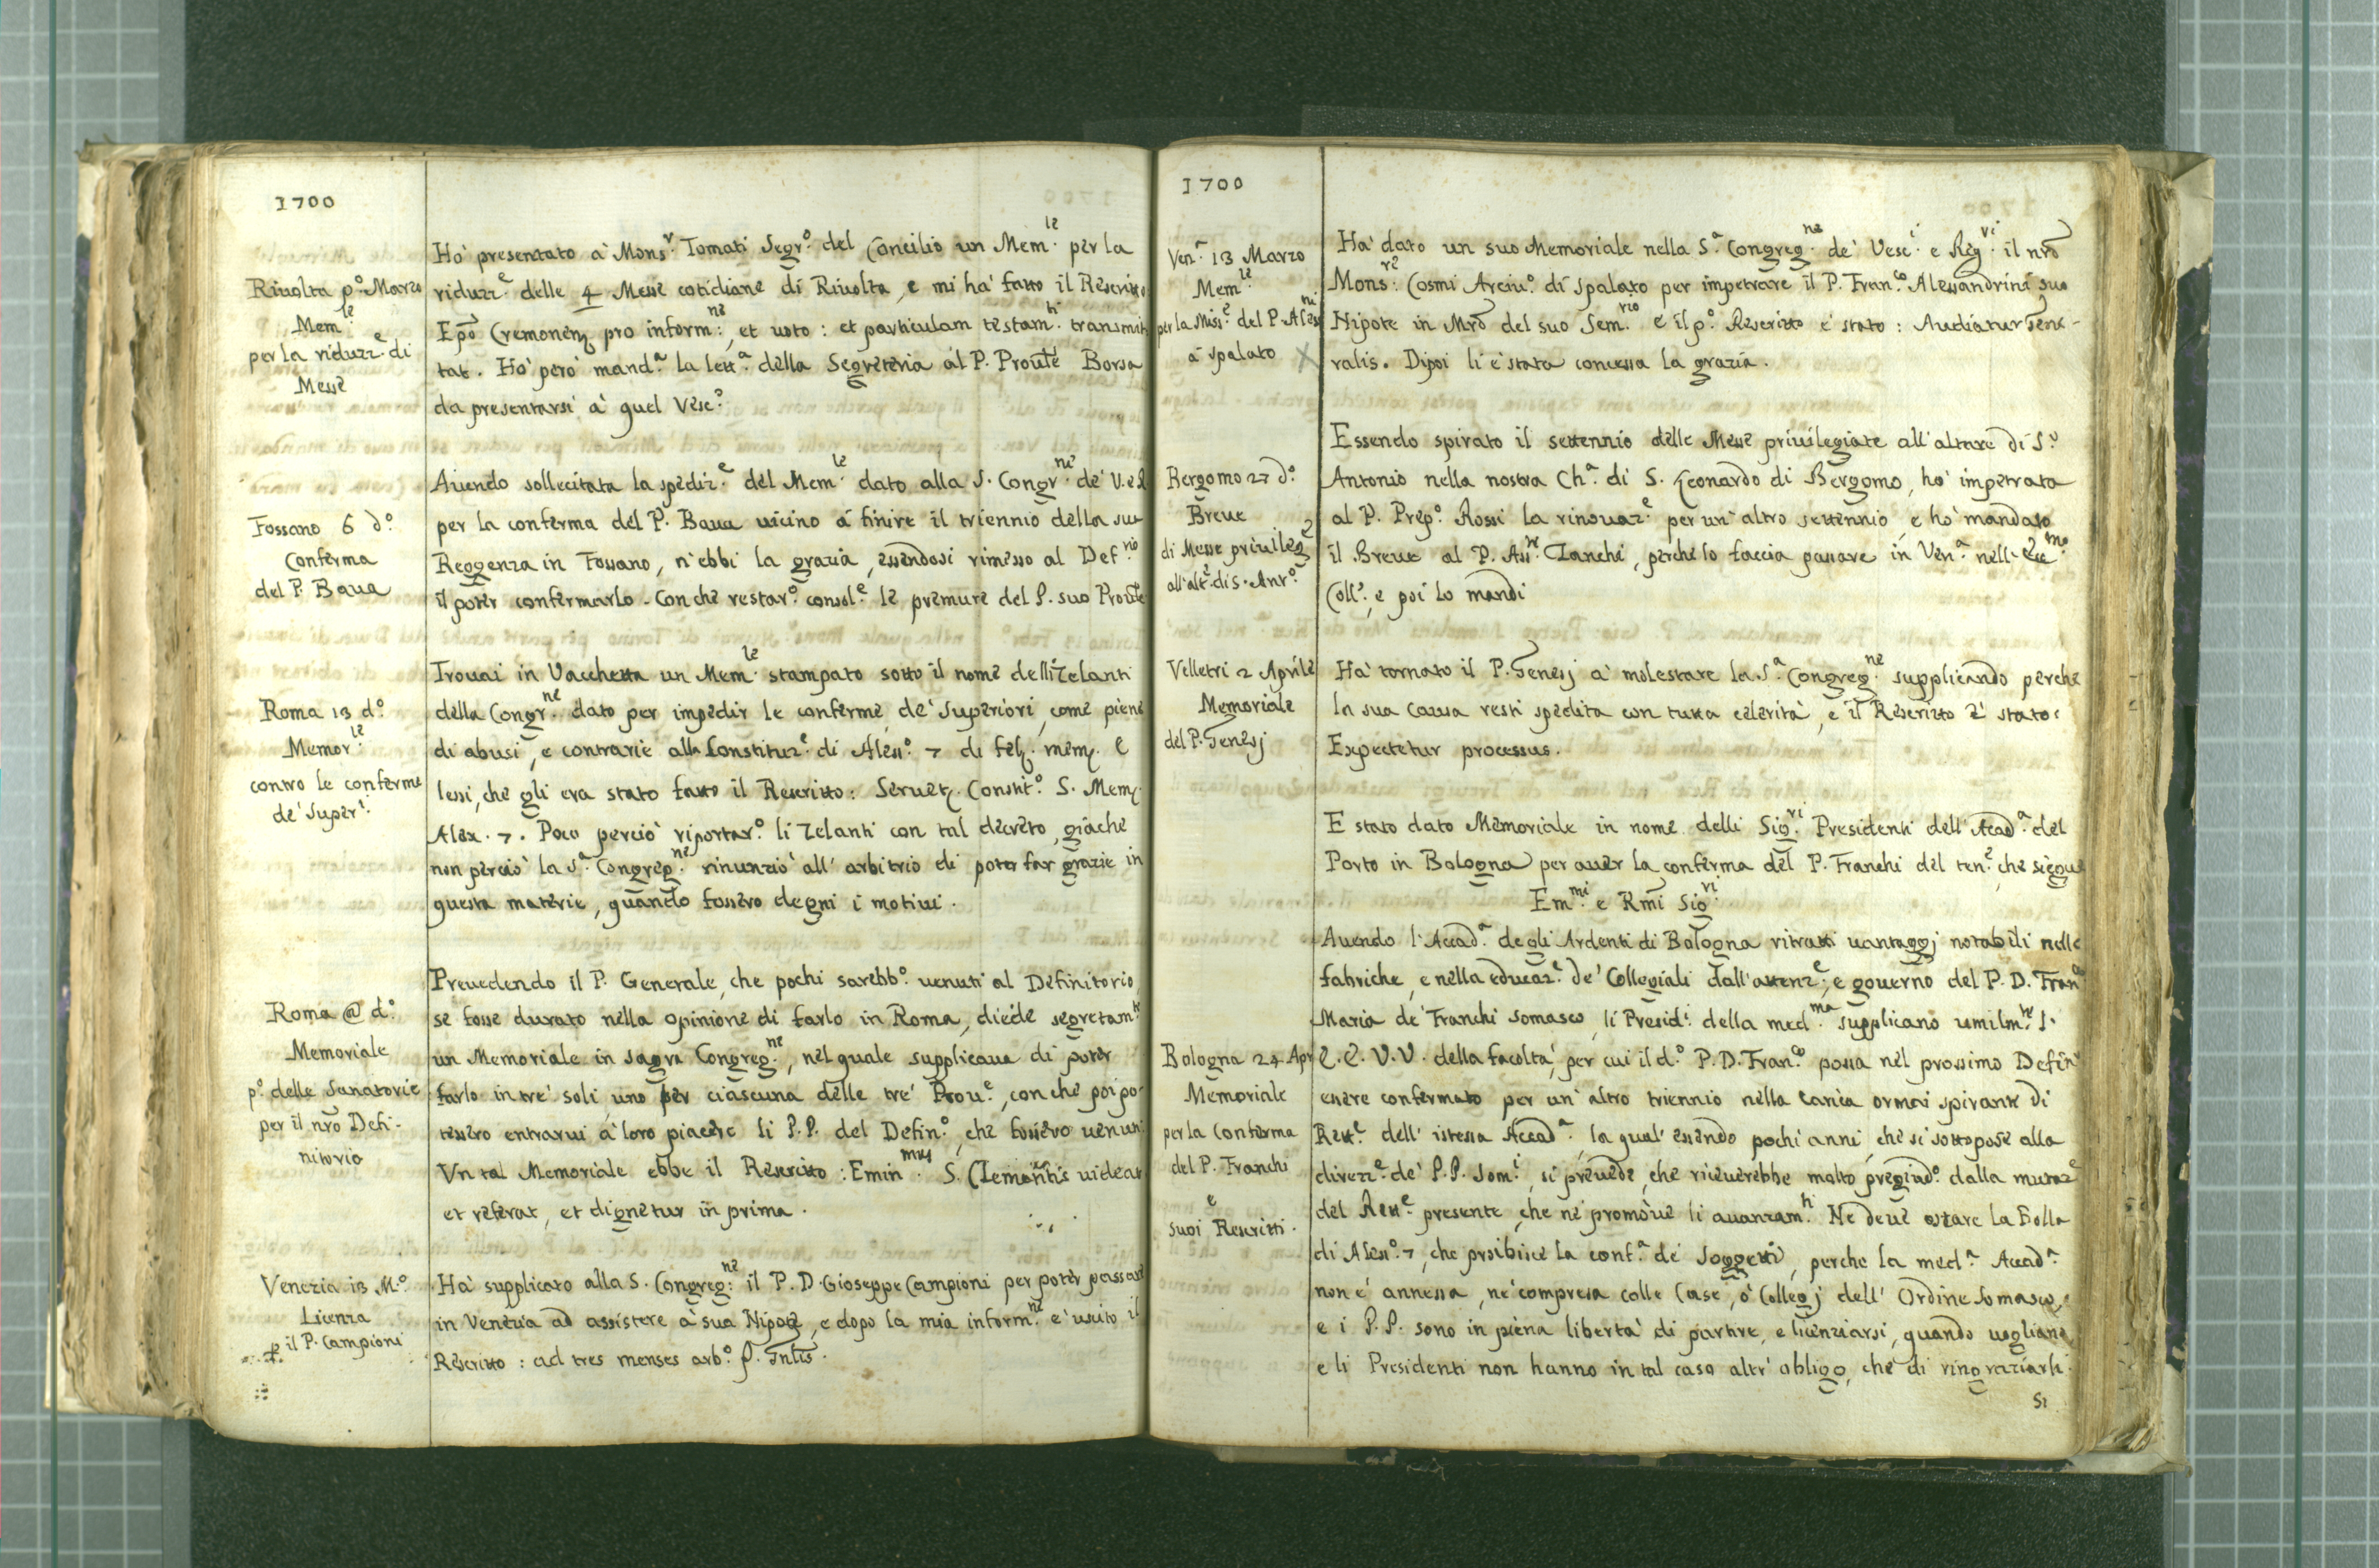 1700
Rivolta p.º Marzo
Mem.le
per la riduzz.e di
Messe
Hò presentato à Mons.r Tomati Segr.º del Concilio un Mem.le per la
riduzz.e delle 4 Messe cotidiane di Rivolta, e mi hà fatto il Rescritto
Epō Cremonen pro inform.ne, et voto: et particulam testam.ti transmit
tat. Hò però mand.a la lett.a della Segreteria al P. Proūle Borsa
da presentarsi à quel Vesc.º
Fossano 6 d.º
Conferma
del P. Baua
Auendo sollecitata la spediz.e del Mem.le dato alla S. Congr.ne de' V. e R
per la conferma del P. Baua uicino à finire il triennio della sua
Reggenza in Fossano, n'ebbi la grazia, essendosi rimesso al Def.rio
il poter confermarlo. Con che restar.º consol.e le premure del P. suo Proūle
Roma 13 d.º
Memor.le
contro le conferme
de' Super.i
Trouai in Vacchetta un Mem.le stampato sotto il nome delli Zelanti
della Congr.ne dato per impedir le conferme de' Superiori, come piene
di abusi, e contrarie alla Constituz.e di Aless.º 7 di fel. mem. e
lessi, che gli era stato fatto il Rescritto: Seruet. Constit.º S. Mem.
Alex. 7. Poco perciò riportar.º li Zelanti con tal decreto, giache
non perciò la S.a Congreg.ne rinunziò all' arbitrio di poter far grazie in
questa materie, quando fossero degni i motiui.
Roma @ d.º
Memoriale
p.º delle Sanatorie
per il nrō Defi-
nitorio
Preuedendo il P. Generale, che pochi sarebb.º uenuti al Definitorio,
se fosse durato nella opinione di farlo in Roma, diede segretam.te
un Memoriale in Sagra Congreg.ne, nel quale supplicaua di poter
farlo in tre' soli, uno per ciascuna delle tre' Prou.e, con che poi po-
tessero entrarui à loro piacere li P.P. del Defin.º, che fossero uenuti
Vn tal Memoriale ebbe il Rescritto: Emin.mus S. Clementis uideat
et referat, et dignetur in prima.
Venezia 13 M.º
Licenza
p il P. Campioni
Hà supplicato alla S. Congreg.ne il P. D. Gioseppe Campioni per poter passare
in Venezia ad assistere à sua Nipote, e dopo la mia inform.ne e' uscito il
Rescritto: ad tres menses arb.º P. Gnlis.
1700
Ven.a 13 Marzo
Mem.le
per la Miss.e del P. Aless.ni
à Spalato
Hà dato un suo Memoriale nella S.a Congreg.ne de' Vesc.i e Reg.ri il nrō
Mons.re Cosmi Arciu.º di Spalato per impetrare il P. Fran.co Alessandrini suo
Nipote in Mrō del suo Sem.rio e il p.º Rescritto e' stato: Audiatur Gene-
ralis. Dipoi li e' stata concessa la grazia.
Bergomo 27 d.º
Breue
di Messe priuileg.e
all'alt.e di S. Ant.º
Essendo spirato il settennio delle Messe priuilegiate all'altare di S.º
Antonio nella nostra Ch.a di S. Leonardo di Bergomo, hò impetrata
al P. Prep.º Rossi la rinouaz.e per un'altro settennio, e hò mandato
il Breue al P. Ass.te Zanchi, perche lo faccia passare in Ven.a nell' Ecc.mo
Coll.º, e poi lo mandi
Velletri 2 Aprile
Memoriale
del P. Genesj
Hà tornato il P. Genesj à molestare la S.a Congreg.ne supplicando perche
la sua Causa resti spedita con tutta celerità, e il Rescritto e' stato:
Expectetur processus.
Bologna 24 Apr
Memoriale
per la Conferma
del P. Franchi
e
suoi Rescritti.
E stato dato Memoriale in nome delli Sig.ri Presidenti dell'Acad.a del
Porto in Bologna per auer la conferma del P. Franchi del ten.e, che siegue
Em.mi e Rmi Sig.ri
Auendo l'Accad.a degli Ardenti di Bologna ritratti uantaggj notabili nelle
fabriche, e nella educaz.e de' Collegiali dall'attenz.e, e gouerno del P. D. Fran.co
Maria de' Franchi Somasco, li Presid.i della med.ma supplicano umilm.te l'
E.E. V.V. della facoltà, per cui il d.º P. D. Fran.co possa nel prossimo Defin.
essere confermato per un'altro triennio nella carica ormai spirante di
Rett.e dell' istessa Accad.a, la qual' essendo pochi anni, che si sottopose alla
direzz.e de' P.P. Som.i, si preuede, che riceuerebbe molto pregiud.º dalla mutaz.e
del Rett.e presente, che ne promoue li auanzam.ti. Ne deue ostare la Bolla
di Aless.º 7, che proibisce la conf.a de' Soggetti, perche la med.a Accad.a
non e' annessa, ne' compresa colle Case, ò Collegj dell' Ordine Somasco,
e i P.P. sono in piena libertà di partire, e licenziarsi, quando uogliano
e li Presidenti non hanno in tal caso altr' obligo, che di ringraziarli.
Si